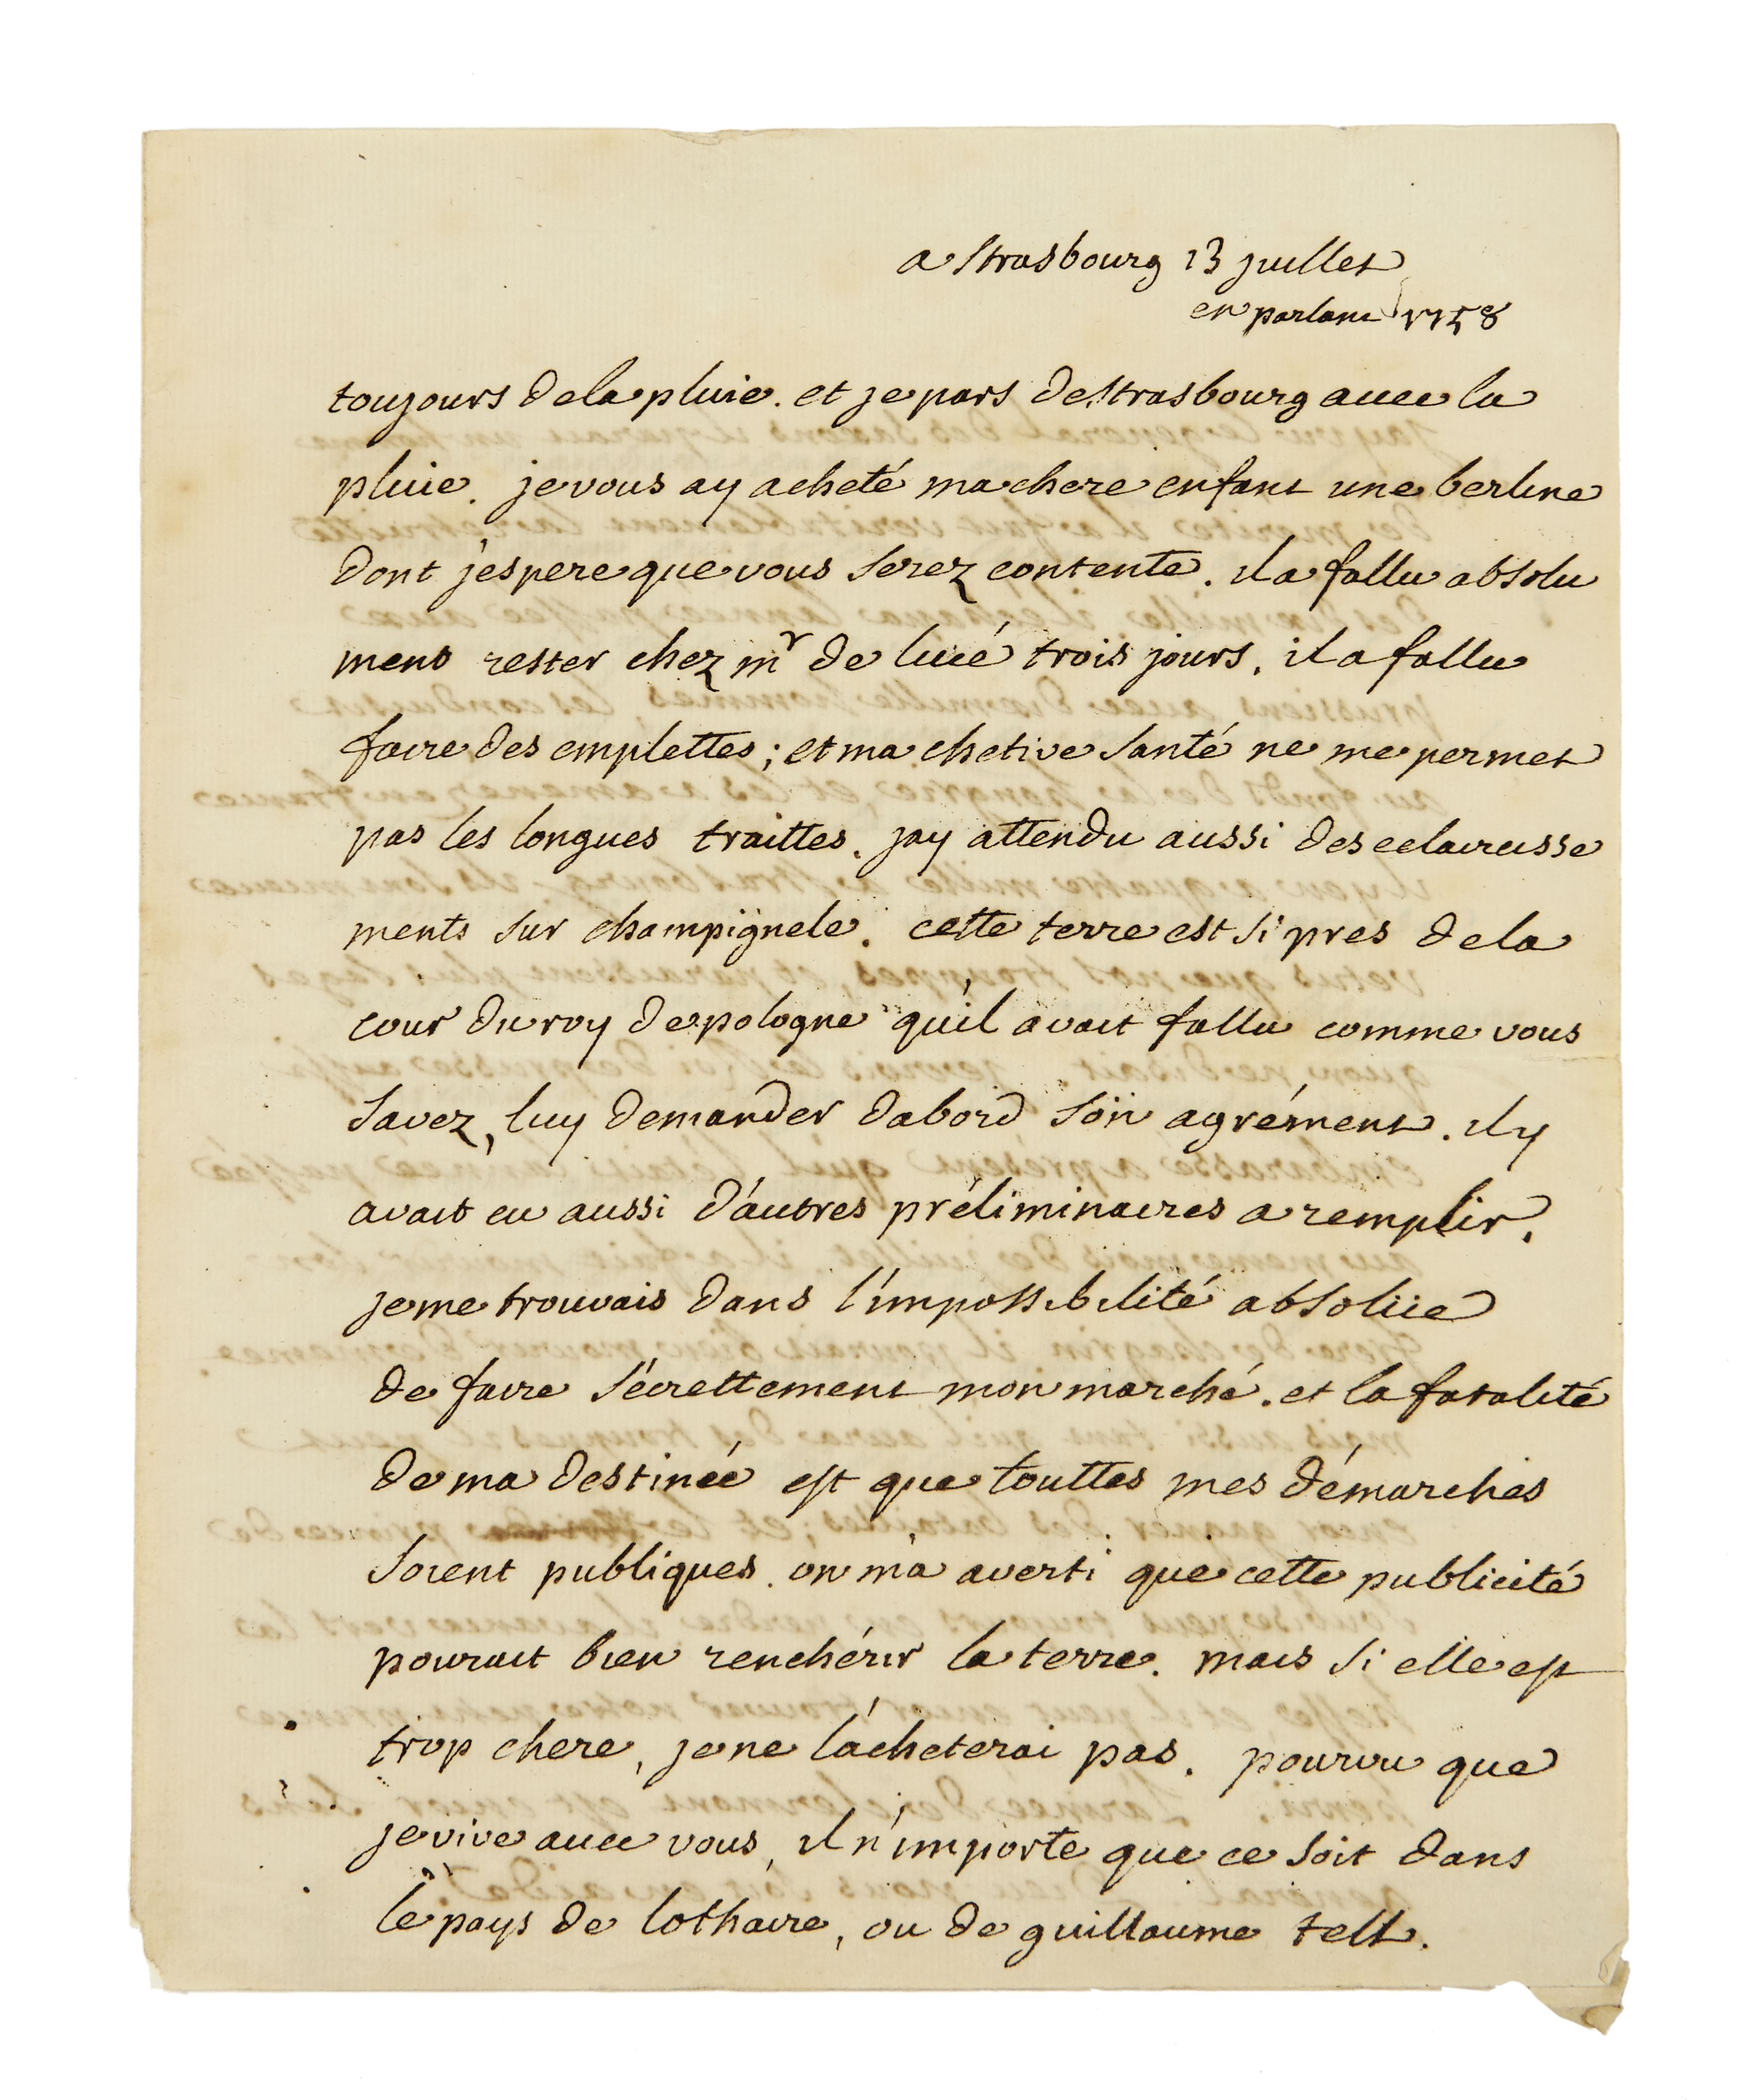 a strasbourg 13 juillet
en partant 1758
toujours de la pluie. et je pars de strasbourg avec la
pluie. je vous ay acheté ma chere enfant une berline
dont j'espere que vous serez contente. il a fallu absolu
ment rester chez mr de lucé trois jours. il a fallu
faire des emplettes; et ma chetive santé ne me permet
pas les longues traittes. jay attendu aussi des eclaircisse
ments sur champignele. cette terre est si pres de la
cour du roy de pologne qu'il avait fallu comme vous
savez, luy demander dabord son agrément. il y
avait eu aussi d'autres préliminaires a remplir.
je me trouvais dans l'impossibilité absolüe
de faire sécrettement mon marché. et la fatalité
de ma destinée est que touttes mes démarches
soient publiques. on m'a averti que cette publicité
pourait bien renchérir la terre. mais si elle est
trop chere, je ne l'acheterai pas. pourvu que
je vive avec vous, il n'importe que ce soit dans
le pays de lothaire, ou de guillaume tell.